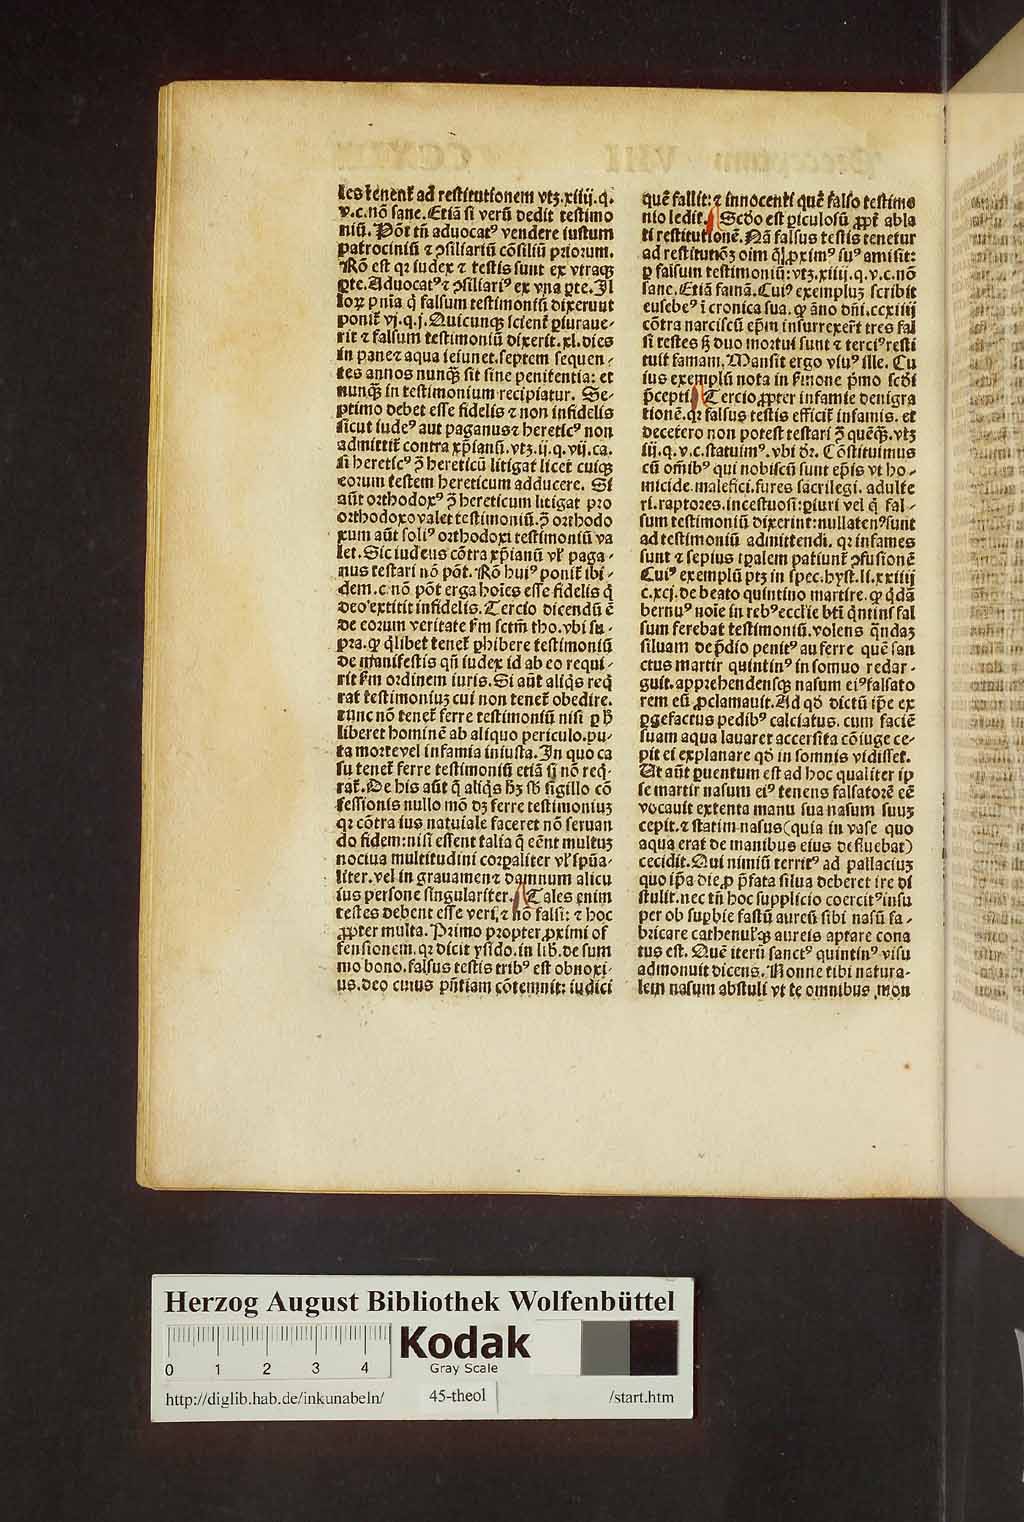 les tenent̃ ad restitutionem vtʒ.xiiij.q.
v.c.nõ sane.Etiã si verũ dedit testimo
niũ. Põt tñ aduocatꝰ vendere iustum
patrociniũ ⁊ ꝯsiliariũ cõsiliũ priorum.
Rõ est qꝛ iudex ⁊ testis sunt ex vtraqꝫ
ꝑte. Aduocatꝰ ⁊ ꝯsiliariꝰ ex vna ꝑte. Il
loꝝ pnĩa q̃ falsum testimoniũ dixerunt
ponit̃ vj.q.j. Quicunqꝫ scient̃ ꝑiuraue-
rit ⁊ falsum testimoniũ dixerit.xl.dies
in pane ⁊ aqua ieiunet.septem sequen-
tes annos nunqꝫ sit sine penitentia: et
nunqꝫ in testimonium recipiatur. Se-
ptimo debet esse fidelis ⁊ non infidelis
sicut iudeꝰ aut paganus ⁊ hereticꝰ non
admittit̃ contra xp̃ianũ.vtʒ.ij.q.vij.ca.
si hereticꝰ ꝯ̃ hereticũ litigat licet cuiqꝫ
eorum testem hereticum adducere. Si
aũt orthodoxꝰ ꝯ̃ hereticum litigat pro
orthodoxo valet testimoniũ.ꝯ̃ orthodo
xum aũt soliꝰ orthodoxi testimoniũ va
let. Sic iudeus cõtra xp̃ianũ vl̃ paga-
nus testari nõ põt. Rõ huiꝰ ponit̃ ibi-
dem.c.nõ põt erga hoĩes esse fidelis q̃
deo extitit infidelis. Tercio dicendũ ẽ
de eorum veritate fm̃ sctm̃ tho.vbi su-
pra.ꝙ q̃libet tenet̃ ꝑhibere testimoniũ
de manifestis qñ iudex id ab eo requi-
rit fm̃ ordinem iuris. Si aũt aliq̃s req̃
rat testimoniuʒ cui non tenet̃ obedire.
tunc nõ tenet̃ ferre testimoniũ nisi ꝑ h̃
liberet hominẽ ab aliquo periculo.pu-
ta morte vel infamia iniusta. In quo ca
su tenet̃ ferre testimoniũ etiã sj nõ req̃-
rat̃. De his aũt q̃ aliq̃s hʒ sb̃ sigillo cõ
fessionis nullo mõ dʒ ferre testimoniuʒ
qꝛ cõtra ius naturale faceret nõ seruan
do fidem:nisi essent talia q̃ eẽnt multuʒ
nociua multitudini corꝑaliter vl̃ spũa-
liter.vel in grauamen ⁊ damnum alicu
ius persone singulariter. Tales enim
testes debent esse veri,⁊ nõ falsi: ⁊ hoc
ꝓpter multa. Primo propter ꝓximi of
fensionem.qꝛ dicit ysido.in lib̃.de sum
mo bono.falsus testis tribꝰ est obnoxi-
us.deo cuius pñtiam cõtemnit: iudici
quẽ fallit:⁊ innocenti quẽ falso testimo
nio ledit. Scd̃o est ꝑiculosũ ꝓpt̃ abla
ti restitutionẽ. Nã falsus testis tenetur
ad restitutiõʒ oĩm q̃ ꝓximꝰ suꝰ amisit:
ꝑ falsum testimoniũ:vtʒ.xiiij.q.v.c.nõ
sane. Etiã famã. Cuiꝰ exempluʒ scribit
eusebeꝰ ĩ cronica sua.ꝙ ãno dñi.ccxiiij
cõtra narciscũ ep̃m insurrexer̃t tres fal
si testes sʒ duo mortui sunt ⁊ terciꝰ resti
tuit famam. Mansit ergo viuꝰ ille. Cu
ius exemplũ nota in s̃mone p̃mo scd̃i
p̃cepti. Tercio ꝓpter infamie denigra
tionẽ.qꝛ falsus testis efficit̃ infamis.et
decetero non potest testari ꝯ̃ quẽqꝫ.vtʒ
iij.q.v.c.statuimꝰ.vbi dr̃. Cõstituimus
cũ om̃ibꝰ qui nobiscũ sunt ep̃is vt ho-
micide.malefici.fures sacrilegi.adulte
ri.raptores.incestuosi:ꝑiuri vel q̃ fal-
sum testimoniũ dixerint:nullatenꝰ sunt
ad testimoniũ admittendi.qꝛ infames
sunt ⁊ sepius tp̃alem patiunt̃ ꝯfusionẽ
Cuiꝰ exemplũ ptʒ in spec.hyst.li.xxiiij
c.xcj.de beato quintino martire.ꝙ q̃dã
bernuꝰ noĩe in rebꝰ eccl̃ie btĩ q̃ntini fal
sum ferebat testimoniũ.volens q̃ndaʒ
siluam de p̃dio penitꝰ auferre quẽ san
ctus martir quintinꝰ in somno redar-
guit.apprehendensqꝫ nasum eiꝰ falsato
rem eũ ꝓclamauit. Ad qð dictũ ip̃e ex
ꝑgefactus pedibꝰ calciatus.cum faciẽ
suam aqua lauaret accersita cõiuge ce-
pit ei explanare qð in somnis vidisset.
Ut aũt ꝑuentum est ad hoc qualiter ip
se martir nasum eiꝰ tenens falsatorẽ eẽ
vocauit extenta manu sua nasum suuʒ
cepit.⁊ statim nasus(quia in vase quo
aqua erat de manibus eius defluebat)
cecidit. Qui nimiũ territꝰ ad pallaciuʒ
quo ip̃a die ꝓ p̃fata silua deberet ire di
stulit.nec tñ hoc supplicio coercitꝰ insu
per ob suꝑbie fastũ aureũ sibi nasũ fa-
bricare cathenul̃qꝫ aureis aptare cona
tus est. Quẽ iterũ sanctꝰ quintinꝰ visu
admonuit dicens. Nonne tibi natura-
lem nasum abstuli vt te omnibus mon
Herzog August Bibliothek Wolfenbüttel
0 1 2 3 4
Kodak
Gray Scale
http://diglib.hab.de/inkunabeln/
45-theol
/start.htm